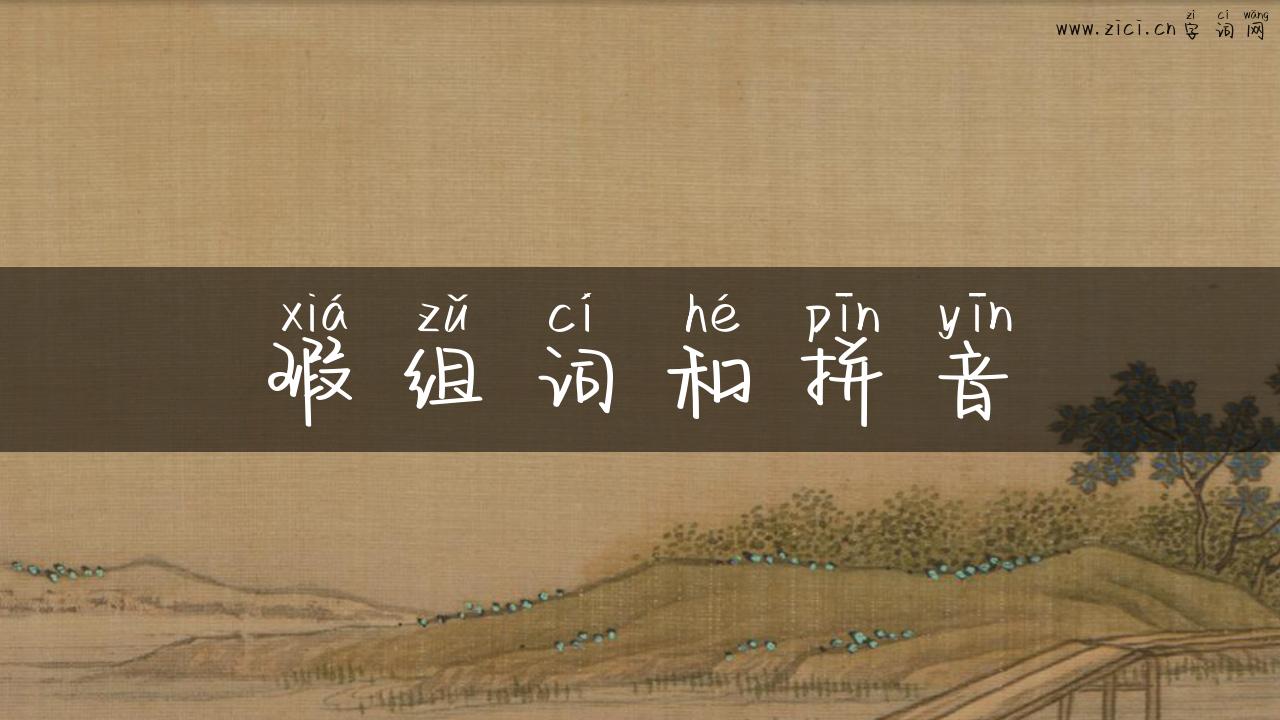 zì cí wǎng
www.zici.cn字词网
xiá zǔ cí hé pīn yīn
瑕组词和拼音